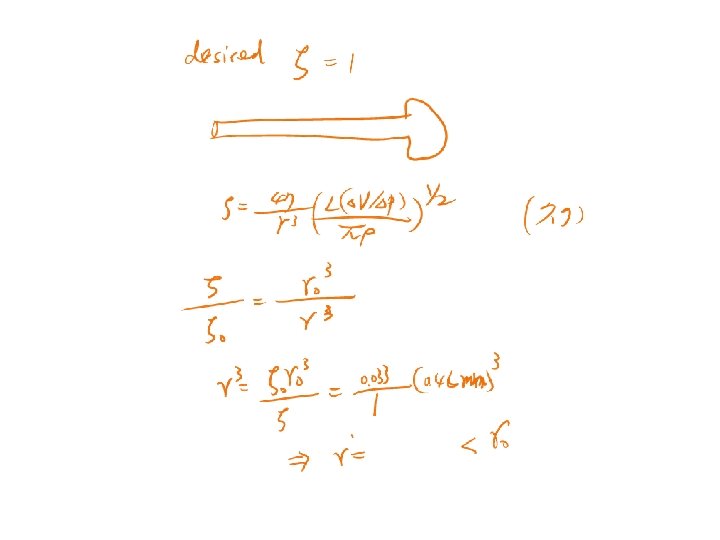 desired ζ = 1
ζ = 4η/r³ (L(ΔV/Δp)/πρ)^1/2
ζ/ζ₀ = r₀³/r³
r³ = ζ₀r₀³/ζ = 0.033/1 (0.46 mm)³
⇒ r = < r₀